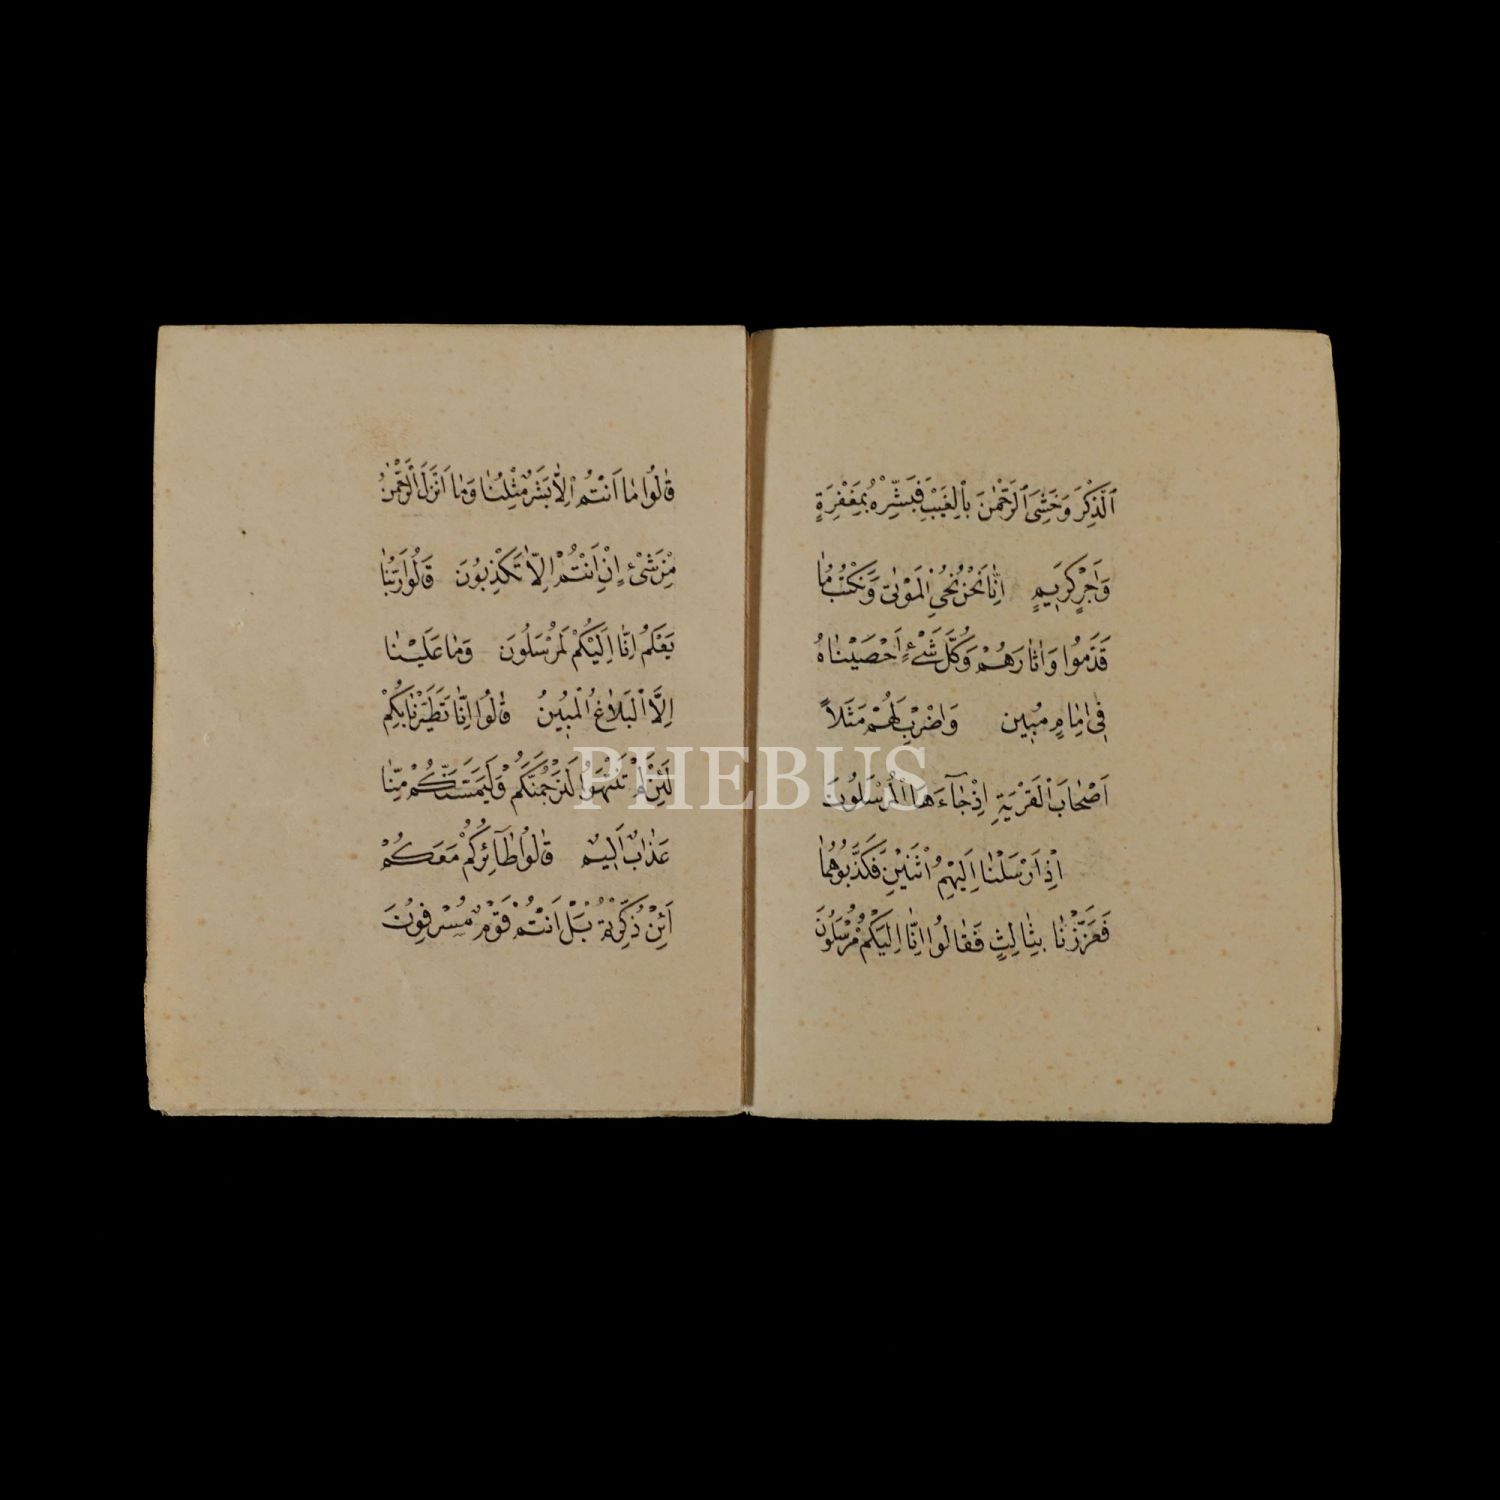 الذِّكْرَ وَخَشِيَ الرَّحْمٰنَ بِالْغَيْبِ فَبَشِّرْهُ بِمَغْفِرَةٍ
وَاَجْرٍ كَرِيمٍ اِنَّا نَحْنُ نُحْيِ الْمَوْتٰى وَنَكْتُبُ مَا
قَدَّمُوا وَاٰثَارَهُمْ وَكُلَّ شَيْءٍ اَحْصَيْنَاهُ
فِى اِمَامٍ مُبِينٍ وَاضْرِبْ لَهُمْ مَثَلاً
اَصْحَابَ الْقَرْيَةِ اِذْ جَآءَهَا الْمُرْسَلُونَ
اِذْ اَرْسَلْنَا اِلَيْهِمُ اثْنَيْنِ فَكَذَّبُوهُمَا
فَعَزَّزْنَا بِثَالِثٍ فَقَالُوا اِنَّا اِلَيْكُمْ مُرْسَلُونَ
قَالُوا مَا اَنْتُمْ اِلَّا بَشَرٌ مِثْلُنَا وَمَا اَنْزَلَ الرَّحْمٰنُ
مِنْ شَىْءٍ اِنْ اَنْتُمْ اِلَّا تَكْذِبُونَ قَالُوا رَبُّنَا
يَعْلَمُ اِنَّا اِلَيْكُمْ لَمُرْسَلُونَ وَمَا عَلَيْنَا
اِلَّا الْبَلَاغُ الْمُبِينُ قَالُوا اِنَّا تَطَيَّرْنَا بِكُمْ
لَئِنْ لَمْ تَنْتَهُوا لَنَرْجُمَنَّكُمْ وَلَيَمَسَّنَّكُمْ مِنَّا
عَذَابٌ اَلِيمٌ قَالُوا طَآئِرُكُمْ مَعَكُمْ
اَئِنْ ذُكِّرْتُمْ بَلْ اَنْتُمْ قَوْمٌ مُسْرِفُونَ
PHEBUS